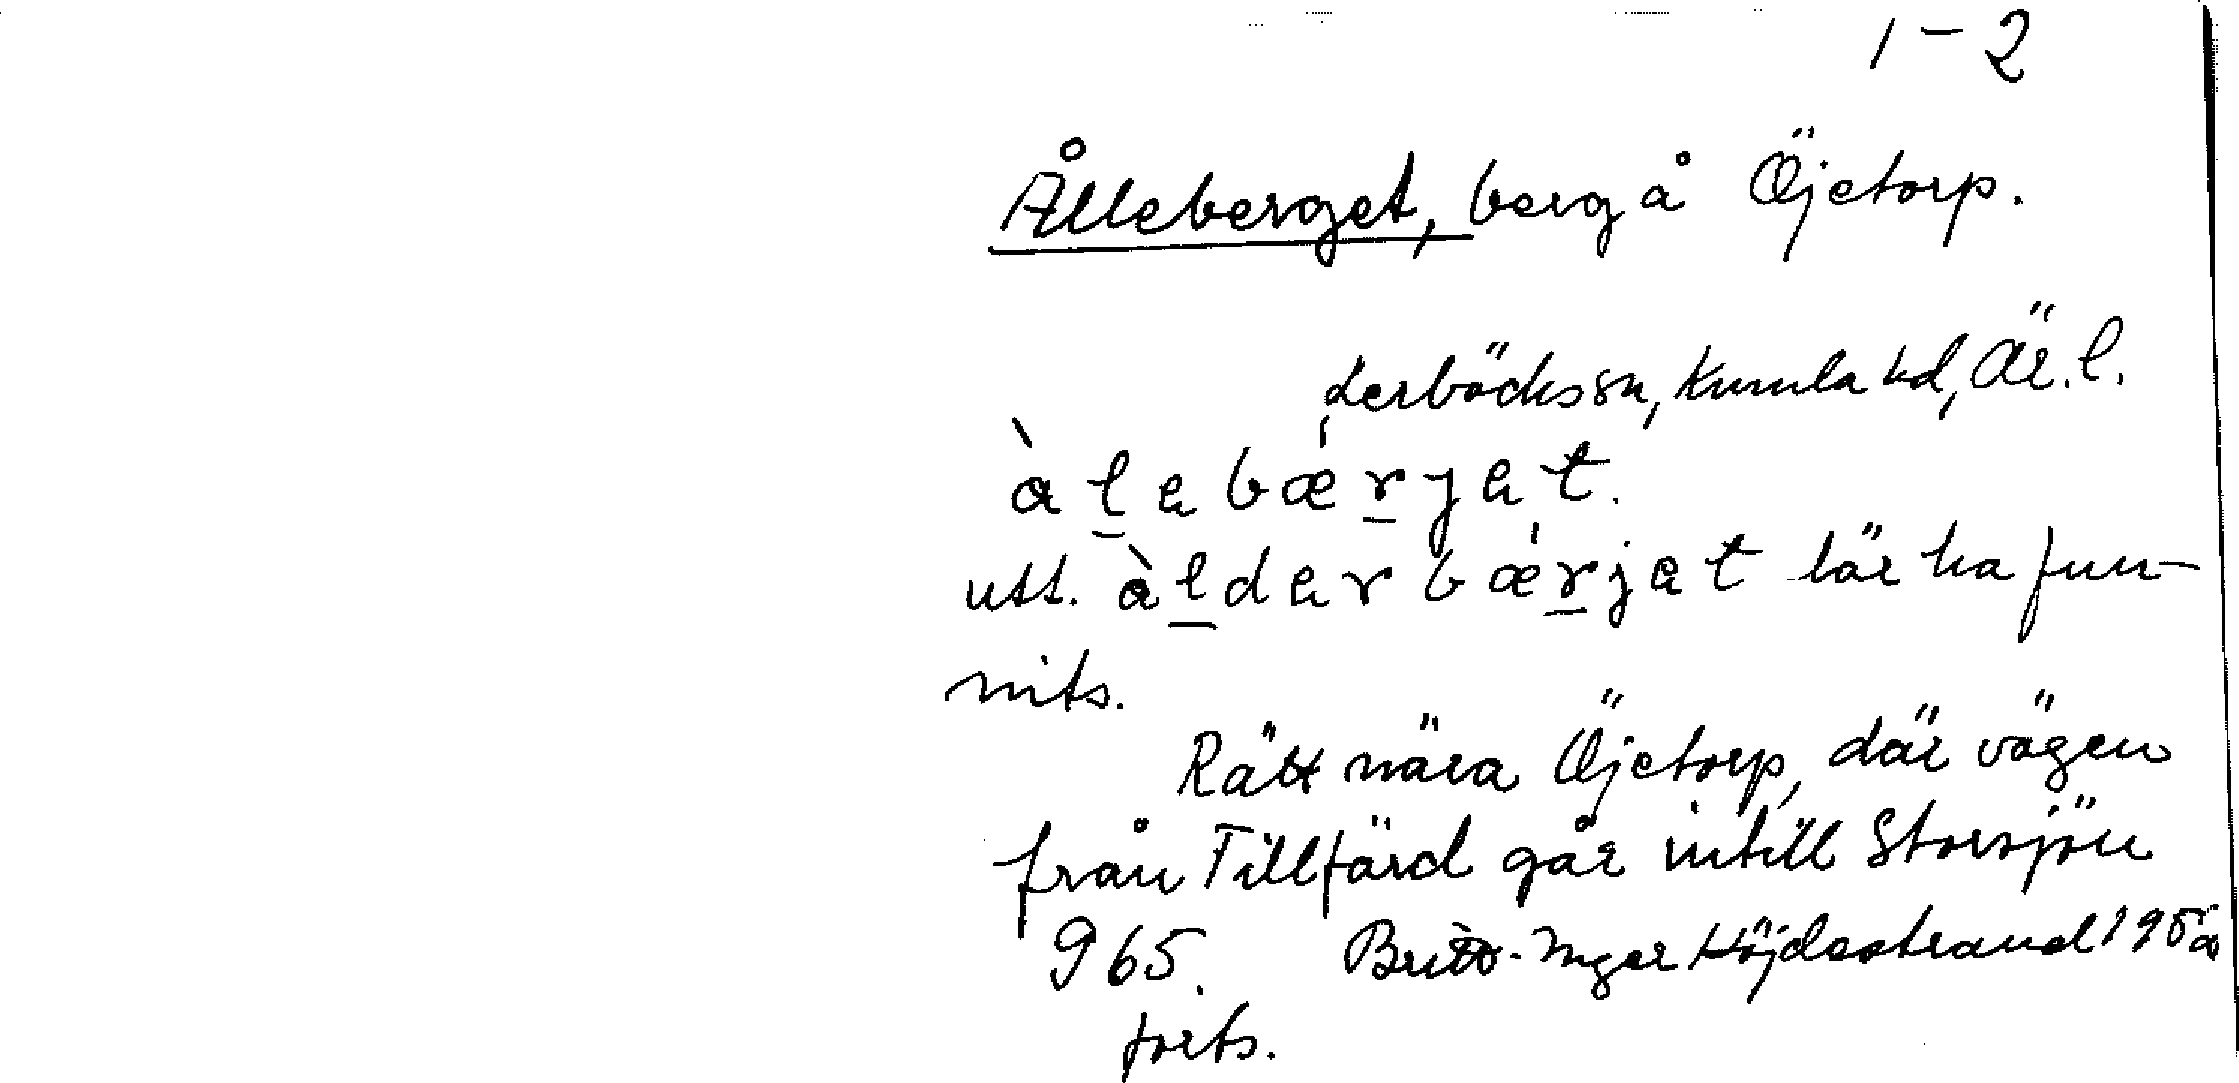 1-2
Ålleberget, berg å Öjetorp.
Lerbäcks sn, Kumla hd, Ör. l.
àlebǽrjet.
utt. àlderbǽrjet lär ha fun-
nits.
Rätt nära Öjetorp, där vägen
från Tillfärd går intill Storsjön
965. Britt-Inger Höjdestrand
forts.